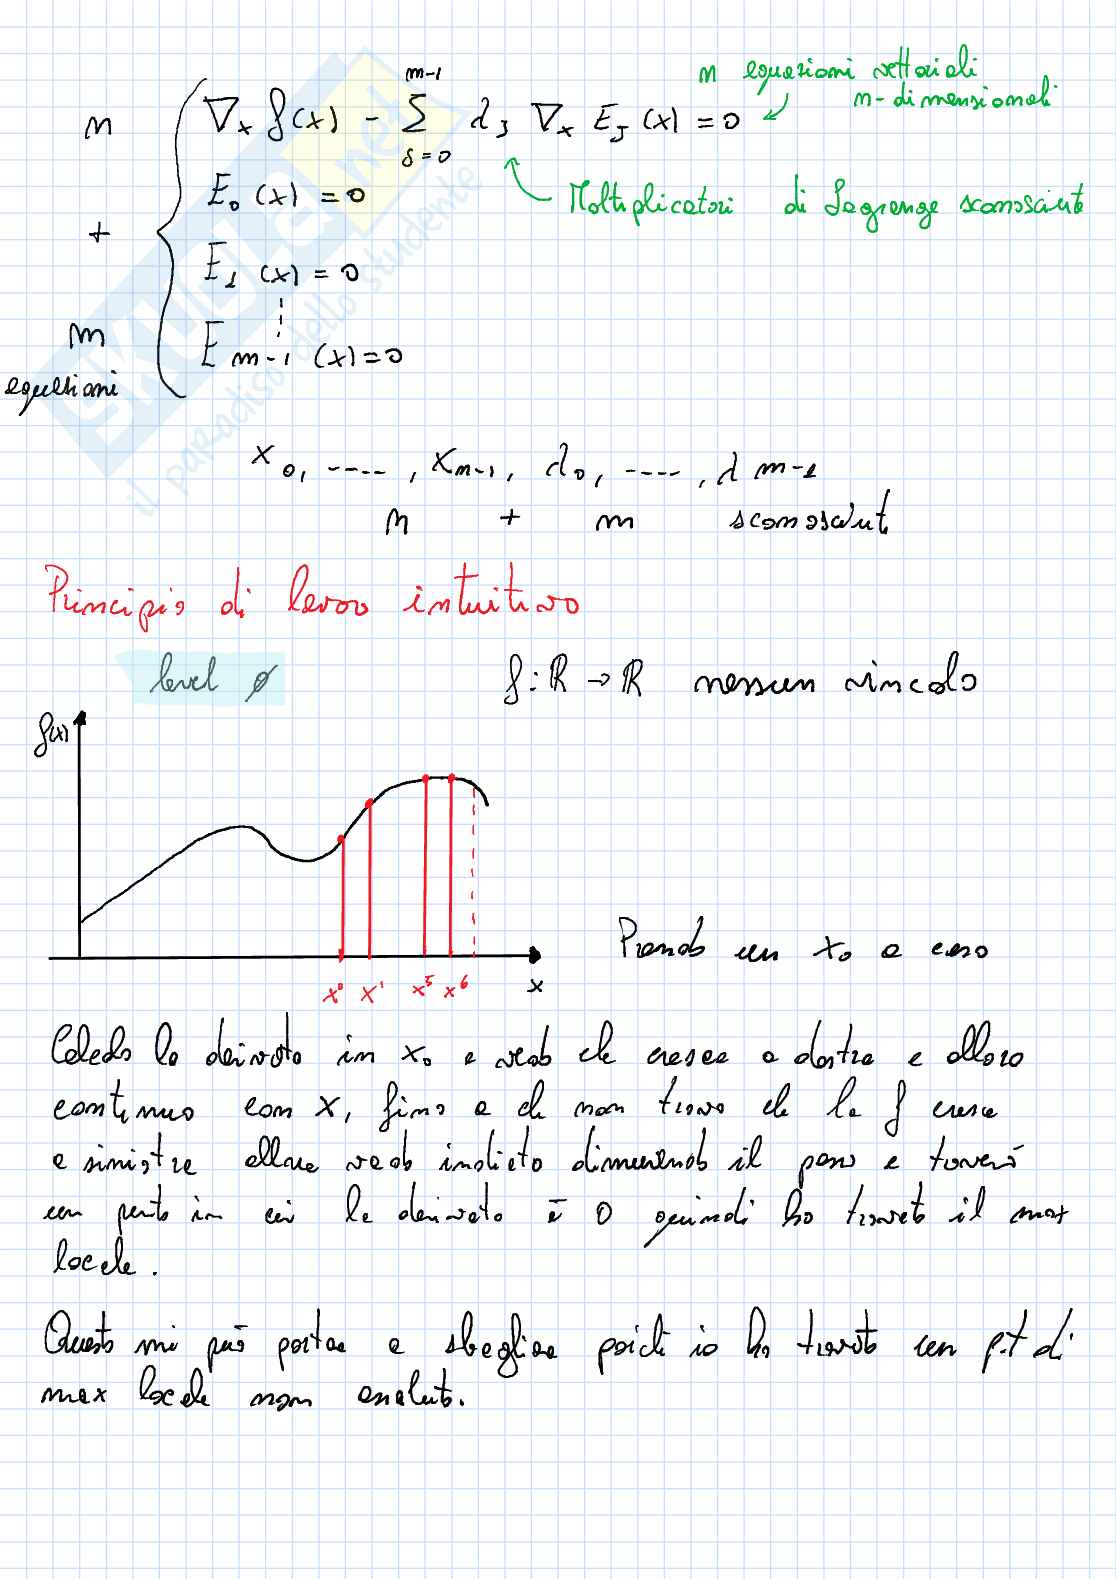 n equazioni vettoriali
n-dimensionali
n + m equazioni
∇x f(x) - Σ_{j=0}^{m-1} λj ∇x Ej(x) = 0
Moltiplicatori di Lagrange sconosciuti
E0 (x) = 0
E1 (x) = 0
Em-1 (x) = 0
x0, ----, xn-1, λ0, ----, λm-1
n + m sconosciut
Principio di lavoro intuitivo
level ∅ f: ℝ → ℝ nessun vincolo
f(x)
x⁰ x¹ x⁵ x⁶ x
Prendo un x0 a caso
Calcolo la derivata in x0 e vedo che cresce a destra e allora
continuo con x, fino a che non trovo che la f cresce
a sinistra allora vado indietro diminuendo il passo e troverò
un punto in cui la derivata è 0 quindi ho trovato il max
locale.
Questo mi può portare a sbagliare poichè io ho trovato un p.t di
max locale non assoluto.
SKUOLA.net
il paradiso dello studente